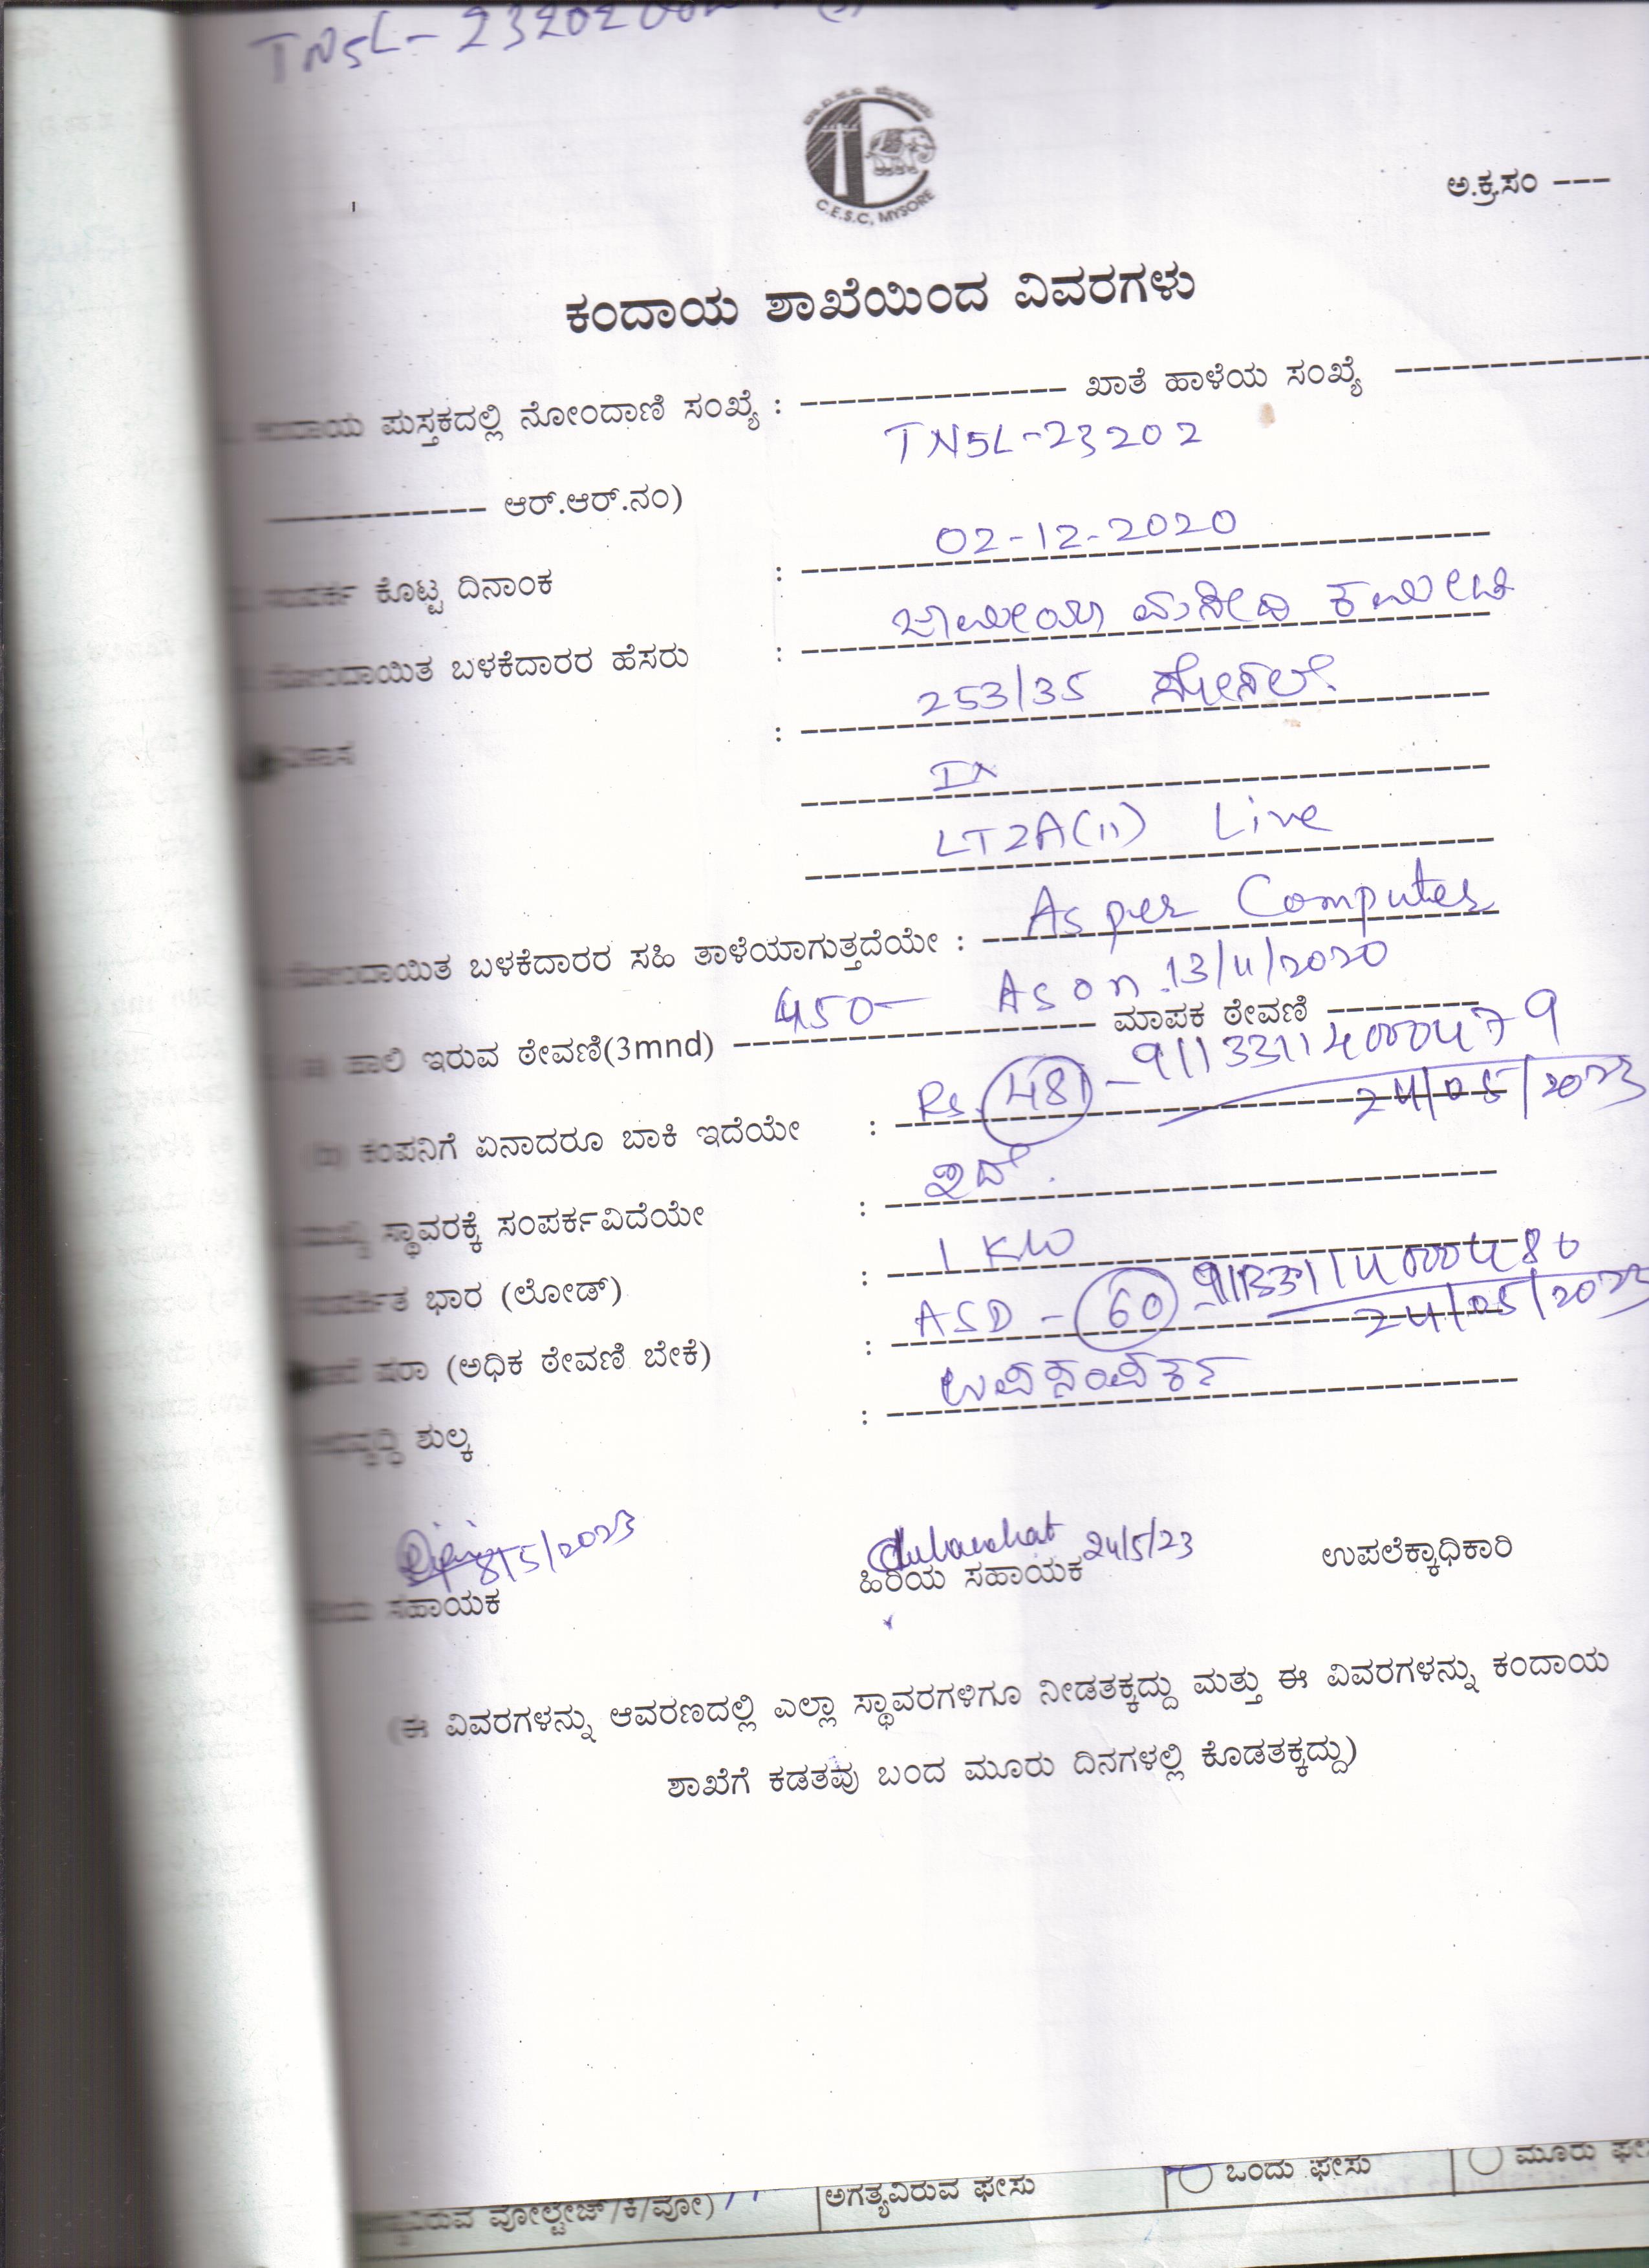 TN5L-23202
C.E.S.C, MYSORE
ಅ.ಕ್ರ.ಸಂ ---
ಕಂದಾಯ ಶಾಖೆಯಿಂದ ವಿವರಗಳು
ಕಂದಾಯ ಪುಸ್ತಕದಲ್ಲಿ ನೋಂದಾಣಿ ಸಂಖ್ಯೆ : -------------- ಖಾತೆ ಹಾಳೆಯ ಸಂಖ್ಯೆ --------------
TN5L-23202
------------ ಆರ್.ಆರ್.ನಂ)
ಸಂಪರ್ಕ ಕೊಟ್ಟ ದಿನಾಂಕ : 02-12-2020
ನೋಂದಾಯಿತ ಬಳಕೆದಾರರ ಹೆಸರು : ಜಾಮೀಯಾ ಮಸೀದಿ ಕಮೀಟಿ
ವಿಳಾಸ : 253/35
LT2A(ii) Live
ನೋಂದಾಯಿತ ಬಳಕೆದಾರರ ಸಹಿ ತಾಳೆಯಾಗುತ್ತದೆಯೇ : As per Computer
As on 13/11/2020
ಹಾಲಿ ಇರುವ ಠೇವಣಿ(3mnd) 450- ಮಾಪಕ ಠೇವಣಿ ---------
ಕಂಪನಿಗೆ ಏನಾದರೂ ಬಾಕಿ ಇದೆಯೇ : Rs. 481 - 91133114000479
24/05/2023
ಸ್ಥಾವರಕ್ಕೆ ಸಂಪರ್ಕವಿದೆಯೇ : ಇದೆ.
ಭಾರ (ಲೋಡ್) : 1 KW
ಷರಾ (ಅಧಿಕ ಠೇವಣಿ ಬೇಕೆ) : ASD - 60 - 91133114000480
24/05/2023
ಶುಲ್ಕ : ಉಪಸಂಪರ್ಕ
8/5/2023
24/5/23
ಸಹಾಯಕ ಹಿರಿಯ ಸಹಾಯಕ ಉಪಲೆಕ್ಕಾಧಿಕಾರಿ
(ಈ ವಿವರಗಳನ್ನು ಆವರಣದಲ್ಲಿ ಎಲ್ಲಾ ಸ್ಥಾವರಗಳಿಗೂ ನೀಡತಕ್ಕದ್ದು ಮತ್ತು ಈ ವಿವರಗಳನ್ನು ಕಂದಾಯ
ಶಾಖೆಗೆ ಕಡತವು ಬಂದ ಮೂರು ದಿನಗಳಲ್ಲಿ ಕೊಡತಕ್ಕದ್ದು)
ವೋಲ್ಟೇಜ್/ಕಿ/ವೋ) ಅಗತ್ಯವಿರುವ ಫೇಸು ಒಂದು ಫೇಸು ಮೂರು